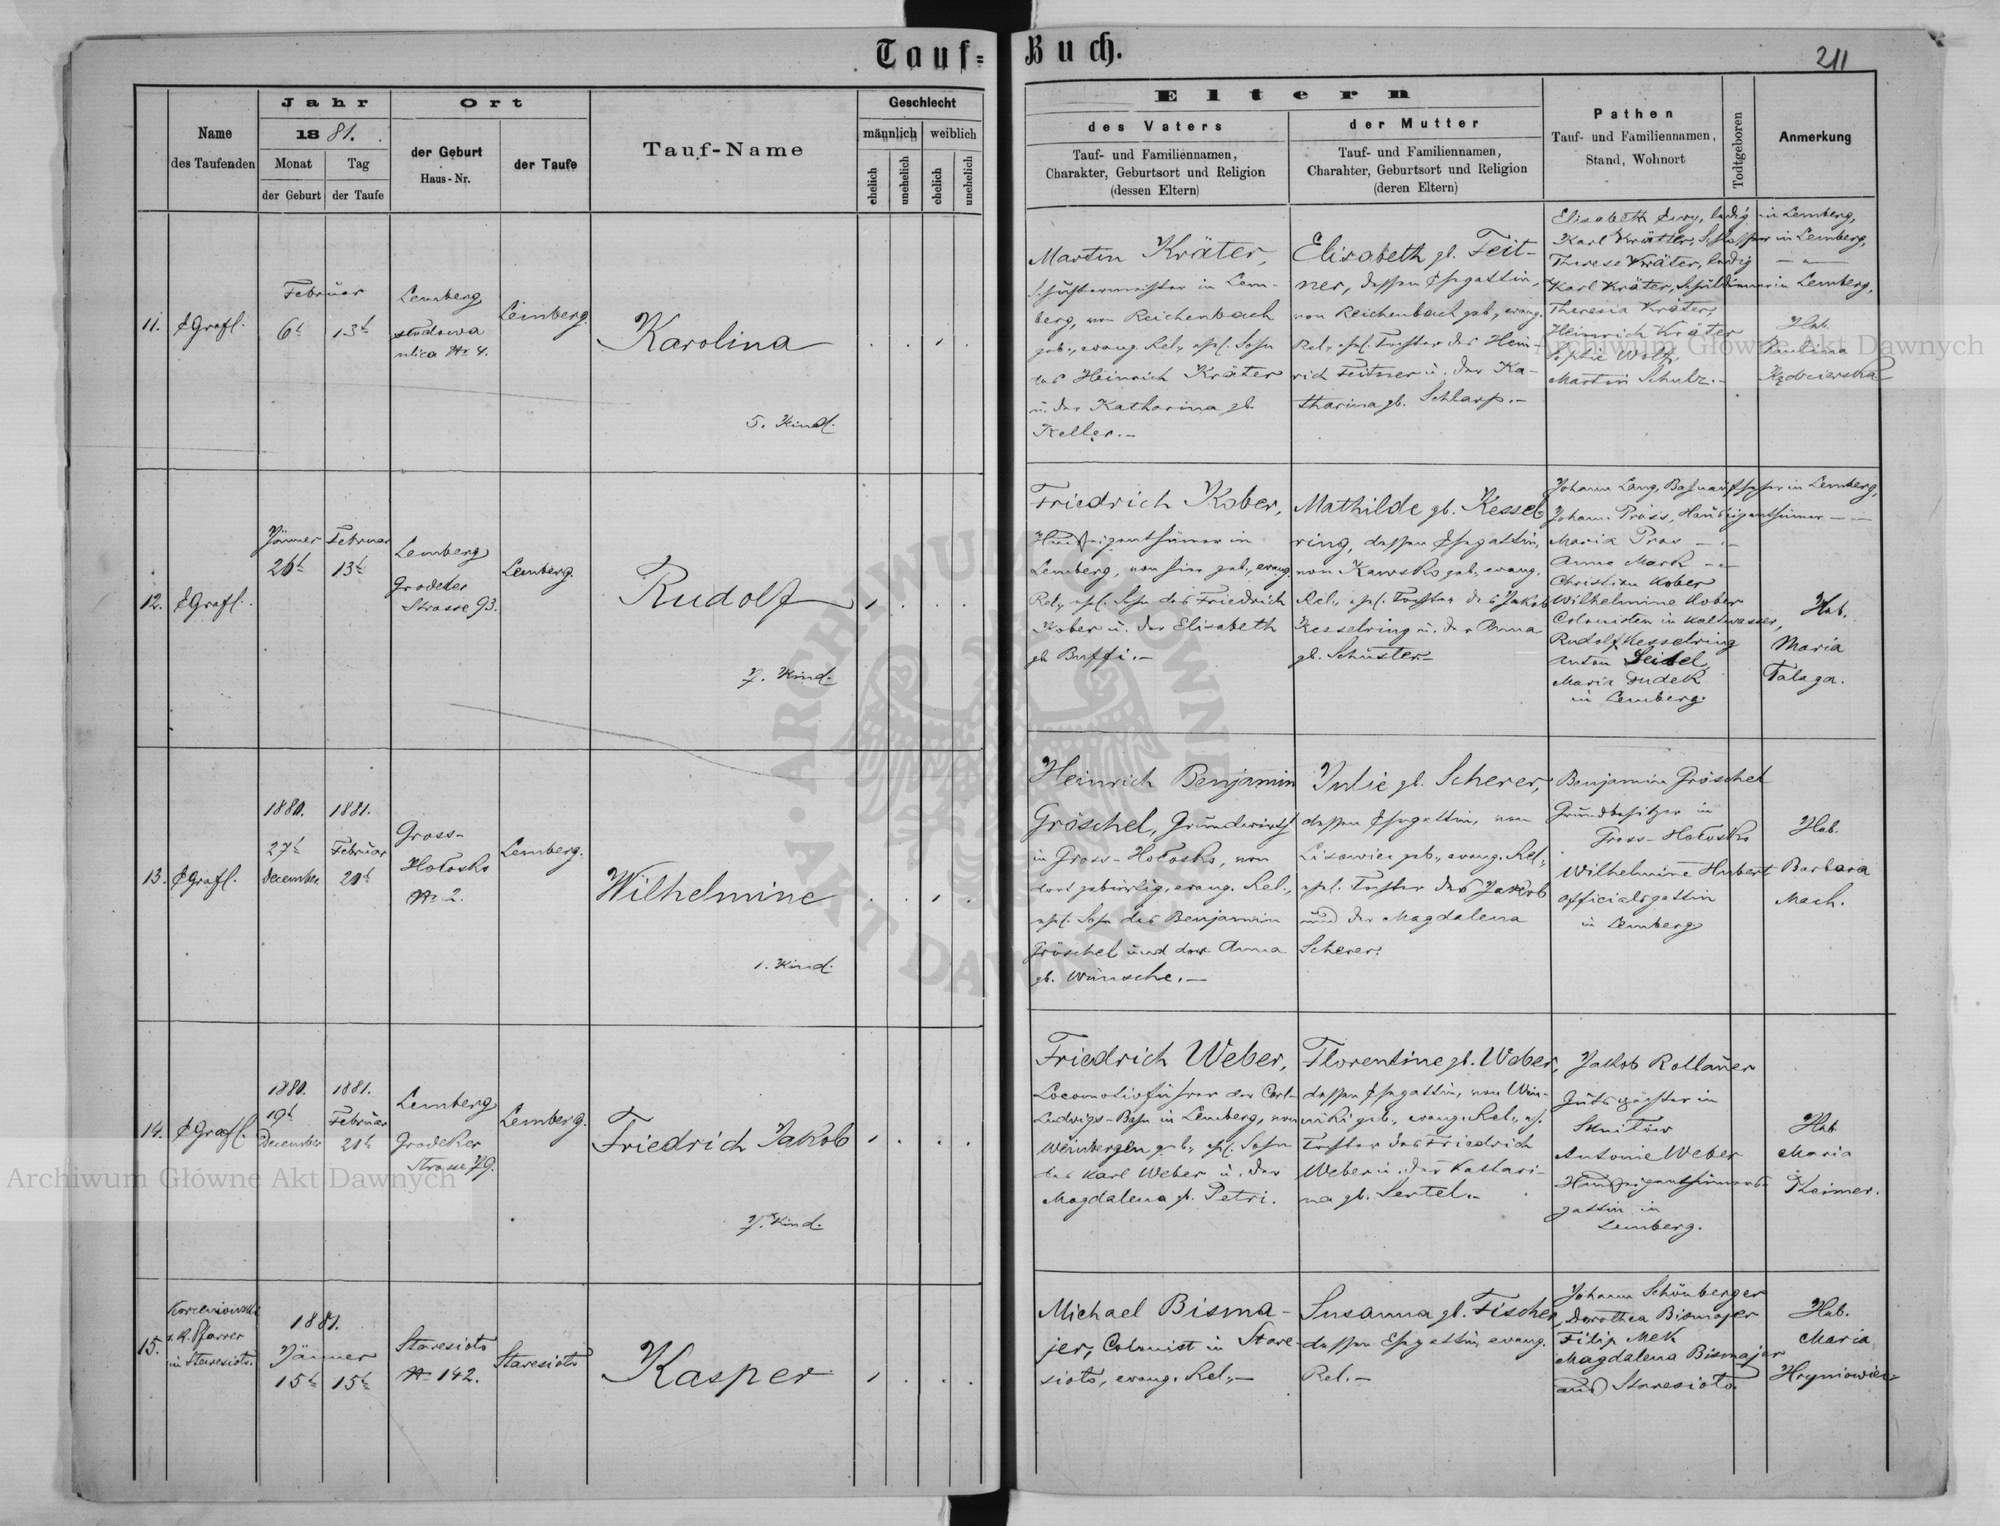 Tauf-Buch.
211
Name
des Taufenden
Jahr
1881.
Monat
Tag
der Geburt
der Taufe
Ort
der Geburt
Haus-Nr.
der Taufe
Tauf-Name
Geschlecht
männlich
weiblich
ehelich
unehelich
ehelich
unehelich
Eltern
des Vaters
Tauf- und Familiennamen,
Charakter, Geburtsort und Religion
(dessen Eltern)
der Mutter
Tauf- und Familiennamen,
Charahter, Geburtsort und Religion
(deren Eltern)
Pathen
Tauf- und Familiennamen,
Stand, Wohnort
Todtgeboren
Anmerkung
11.
Februar
6t
13t
Lemberg
ulica Nr 4.
Lemberg.
Karolina
5. Kind.
Martin Kräter,
in Lem-
berg, von Reichenbach
geb., evang. Rel., ehel. Sohn
des Heinrich Kräter
u. der Katharina gb.
Keller.-
Elisabeth gb. Feit-
ner, dessen Ehegattin,
von Reichenbach geb., evang.
Rel., ehel. Tochter des Hein-
rich Feitner u. der Ka-
tharina gb. Schlarp.-
Elisabeth ledig in Lemberg,
Karl Kräter, Schlosser in Lemberg,
Therese Kräter, ledig
Karl Kräter, Schuldiener in Lemberg,
Theresia Kräter,
Heinrich Kräter
Sophie Wolf,
Martin Schulz.-
Heb.
Paulina
Kędzierska
12.
Jänner
26t
Februar
13t
Lemberg
Grodeker
Strasse 93.
Lemberg.
Rudolf
7. Kind.
Friedrich Kober,
Hauseigenthümer in
Lemberg, von hier geb., evang.
Rel., ehel. Sohn des Friedrich
Kober u. der Elisabeth
gb. Buffi.-
Mathilde gb. Kessel
ring, dessen Ehegattin,
von geb., evang.
Rel., ehel. Tochter des Jakob
Kesselring u. der Anna
gb. Schuster-
Johann Lang, in Lemberg,
Johann Pross, Hauseigenthümer
Maria Pros
Anna Mark
Christian Kober
Wilhelmine Kober
Colonisten in Kaltwasser,
Rudolf Kesselring
Anton Seidel,
Maria Dudek
in Lemberg.
Heb.
Maria
Talaga.
13.
1880.
27t
December
1881.
Februar
20t
Gross-
Hołosko
Nr 2.
Lemberg.
Wilhelmine
1. Kind.
Heinrich Benjamin
Gröschel, Grundwirth
in Gross-Hołosko, von
dort gebürtig, evang. Rel.,
ehel. Sohn des Benjamin
Gröschel und der Anna
gb. Wünsche.-
Julie gb. Scherer,
dessen Ehegattin, von
geb., evang. Rel.,
ehel. Tochter des Jakob
und der Magdalena
Scherer.
Benjamin Gröschel
Grundbesitzer in
Gross-Hołosko
Wilhelmine Hubert
Officialsgattin
in Lemberg
Heb.
Barbara
Mach.
14.
1880.
19t
December
1881.
Februar
20t
Lemberg
Grodeker
Strasse 79.
Lemberg.
Friedrich Jakob
7. Kind.
Friedrich Weber,
Locomotivführer der Carl-
Ludwigs-Bahn in Lemberg, von
Weinbergen geb., ehel. Sohn
des Karl Weber u. der
Magdalena gb. Petri.
Florentine gb. Weber,
dessen Ehegattin, von Win-
niki geb., evang. Rel., eh.
Tochter des Friedrich
Weber u. der Kathari-
na gb. Sertel.-
Jakob Rollauer
Gutspächter in
Antonie Weber
Hauseigenthümers-
gattin in
Lemberg.
Heb.
Maria
15.
r. k. Pfarrer
in Staresioło.
1881.
Jänner
15t
15t
Staresioło
Nr 142.
Staresioło
Kasper
Michael Bisma-
jer, Colonist in Stare-
sioło, evang. Rel.,-
Susanna gb. Fischer,
dessen Ehegattin, evang.
Rel.-
Johann Schönberger
Dorothea Bismajer
Filip Mek
Magdalena Bismajer
aus Staresioło.
Heb.
Maria
Hryniowiec
Archiwum Główne Akt Dawnych
Archiwum Główne Akt Dawnych
ARCHIWUM GŁÓWNE AKT DAWNYCH